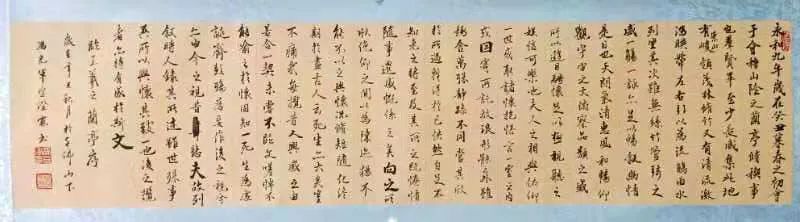 永和九年歲在癸丑暮春之初會
于會稽山陰之蘭亭脩禊事
也羣賢畢至少長咸集此地
有崇山峻領茂林脩竹又有清流激
湍暎帶左右引以為流觴曲水
列坐其次雖無絲竹管弦之
盛一觴一詠亦足以暢敘幽情
是日也天朗氣清惠風和暢仰
觀宇宙之大俯察品類之盛
所以遊目騁懷足以極視聽之
娛信可樂也夫人之相與俯仰
一世或取諸懷抱悟言一室之內
或因寄所託放浪形骸之外雖
趣舍萬殊靜躁不同當其欣
於所遇暫得於己快然自足不
知老之將至及其所之既惓情
隨事遷感慨係之矣向之所
欣俛仰之閒以為陳迹猶不
能不以之興懷況脩短隨化終
期於盡古人云死生亦大矣豈
不痛哉每攬昔人興感之由
若合一契未嘗不臨文嗟悼不
能喻之於懷固知一死生為虛
誕齊彭殤為妄作後之視今
亦由今之視昔悲夫故列
敘時人錄其所述雖世殊事
異所以興懷其致一也後之攬
者亦將有感於斯文
臨王羲之蘭亭序
歲在辛丑秋月於千佛山下